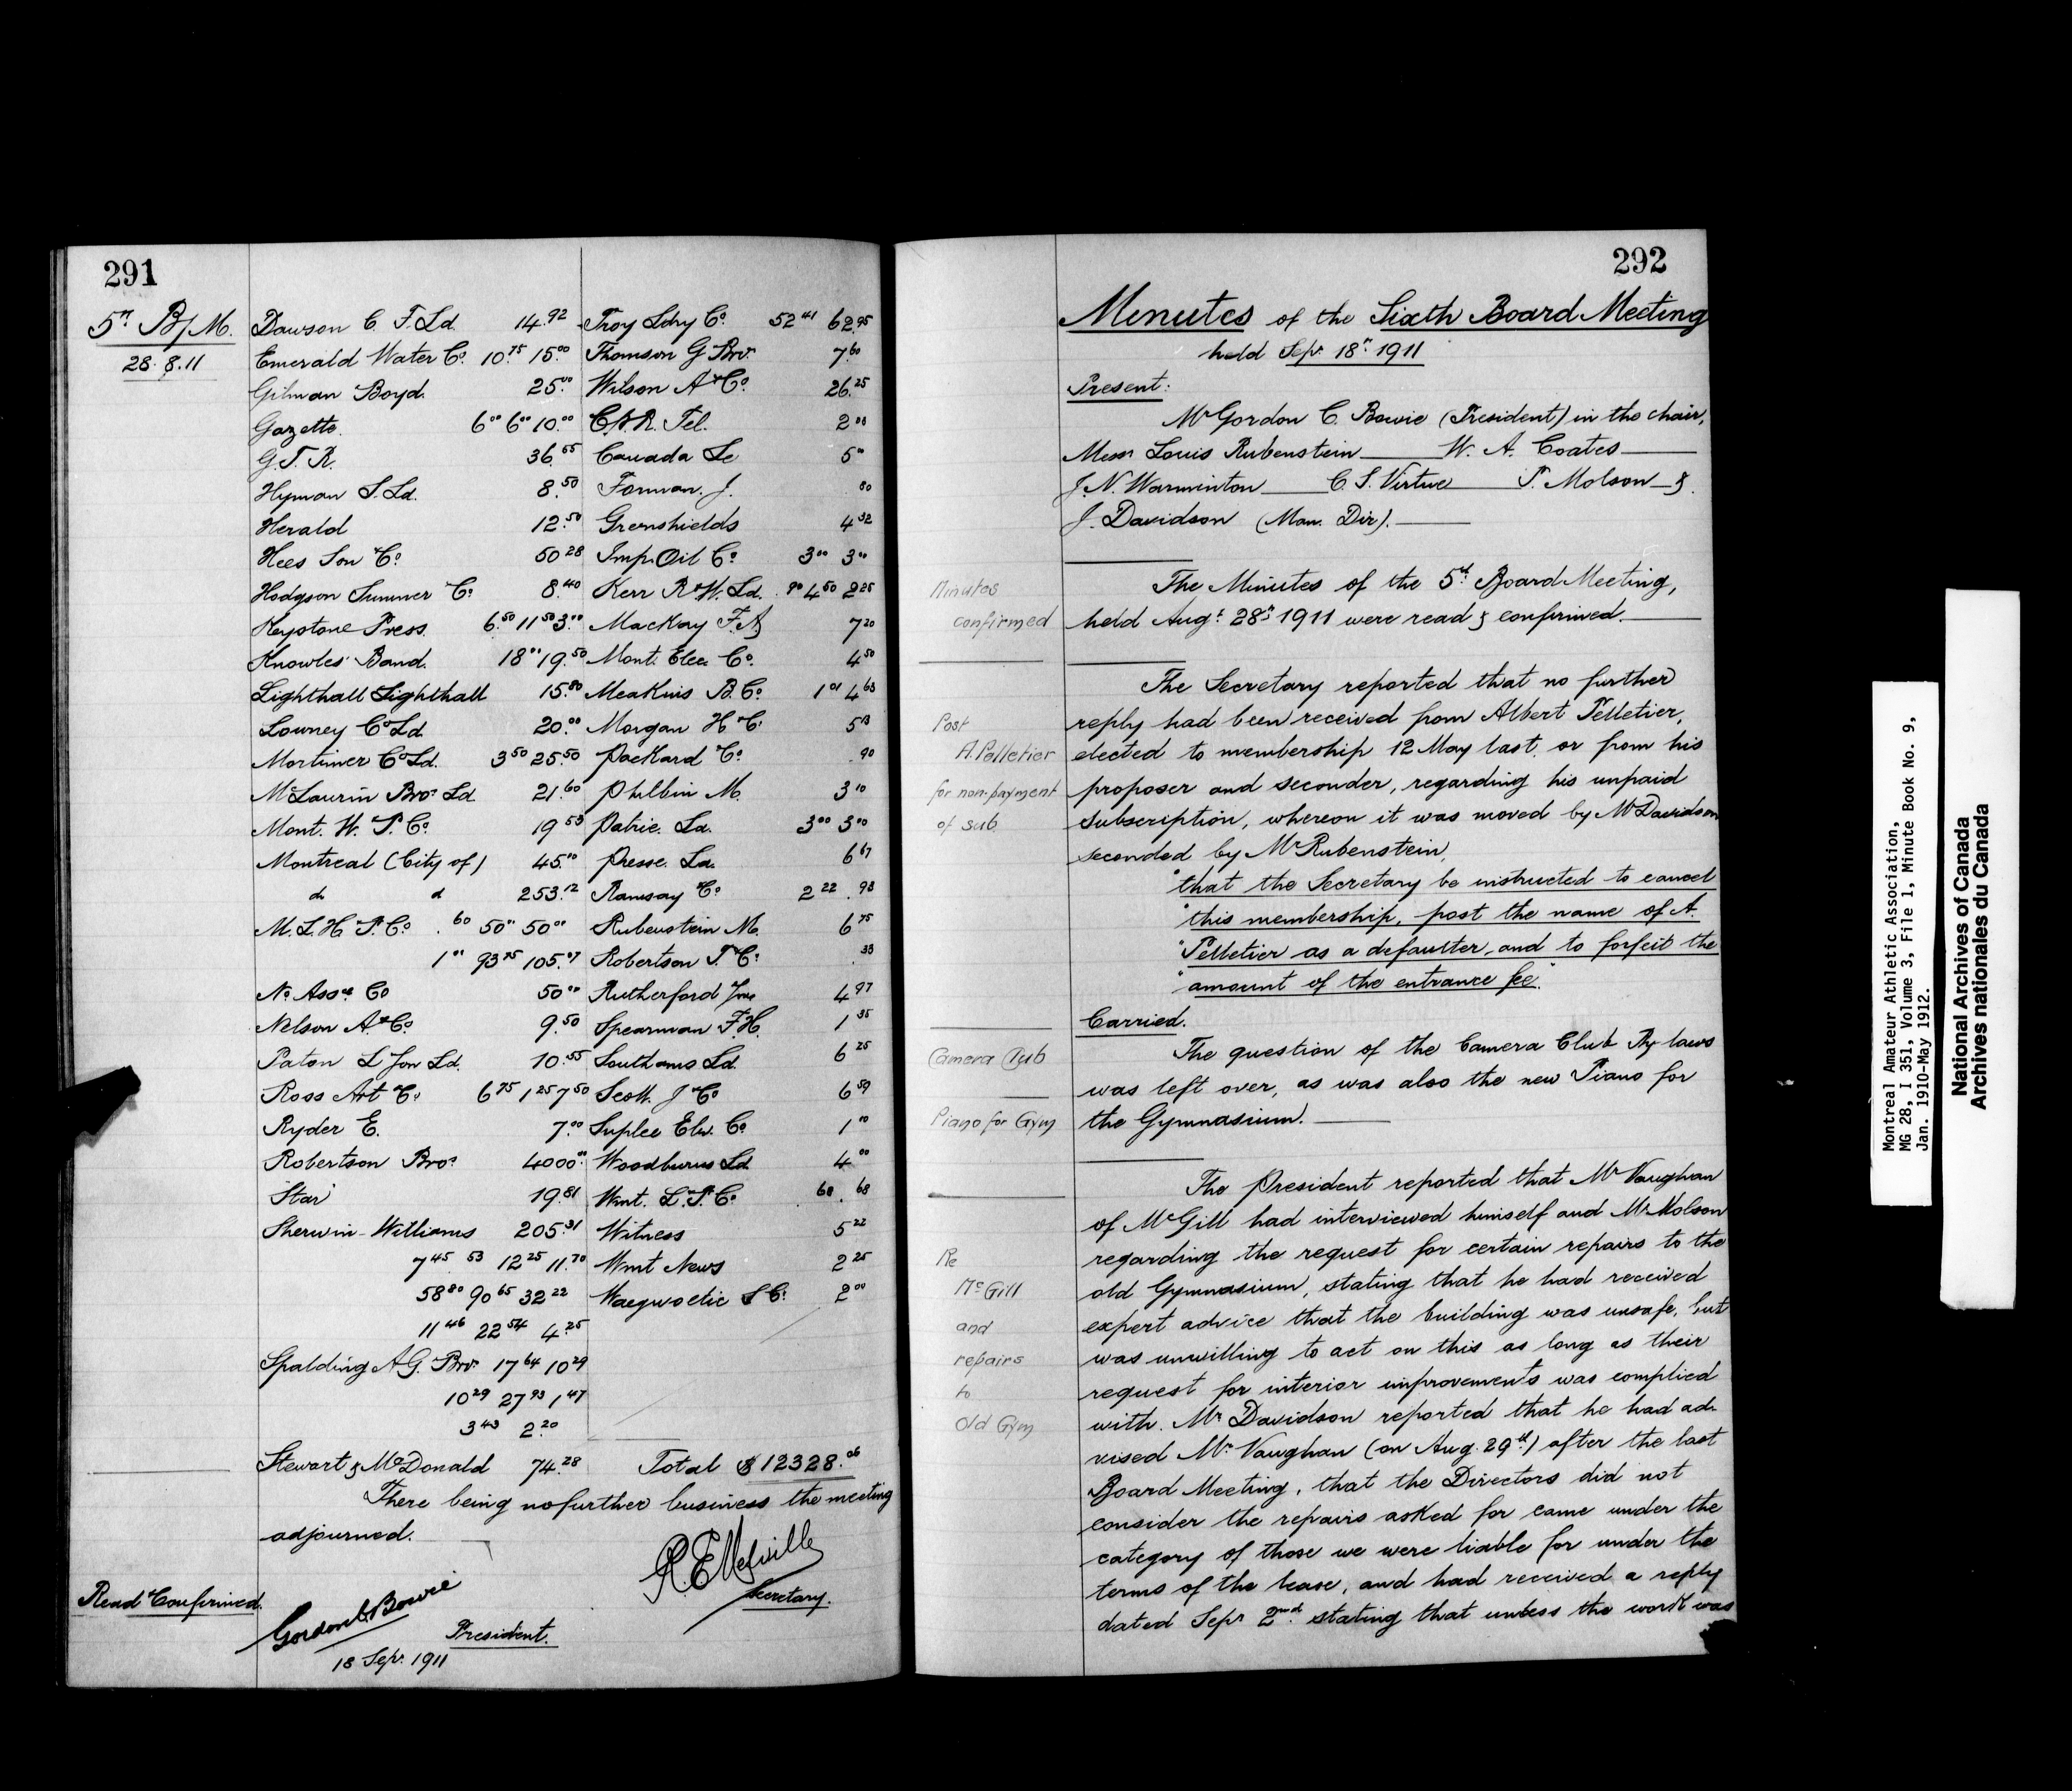 291
5th B/M.
28.8.11
Dawson C. F. Ld. 14.92 Troy Ldry Co. 52.41 62.95
Emerald Water Co. 10.75 15.00 Thomson G Bro. 7.60
Gilman Boyd. 25.00 Wilson A & Co. 26.25
Gazette. 6.00 6.00 10.00 C.P.R. Tel. 2.00
G.T.R. 36.65 Canada Le 5.00
Hyman S. Ld. 8.50 Forman. J. 80
Herald 12.50 Greenshields 4.32
Hees Son & Co. 50.28 Imp. Oil Co. 3.00 3.00
Hodgson Sumner & Co. 8.40 Kerr R & W. Ld. .90 4.50 2.25
Keystone Press. 6.50 11.50 3.00 MacKay F. A 7.20
Knowles' Band. 18.00 19.50 Mont. Elec. Co. 4.50
Lighthall Lighthall 15.80 Meakins B. Co. 1.01 4.63
Lowney Co Ld 20.00 Morgan H & Co. 5
Mortimer Co Ld. 3.50 25.50 Packard & Co. .90
McLaurin Bros Ld. 21.60 Philbin M. 3.10
Mont. W. P. Co. 19.53 Patrie. La. 3.00 3.00
Montreal (City of) 45.00 Presse. La. 6.67
do d 253.12 Ramsay & Co. 2.22 .98
M. L. H. & P. Co. .60 50.00 50.00 Rubenstein M. 6.75
1.00 93.75 105.07 Robertson J. & Co. .33
No. Assce Co 50.00 Rutherford Jno 4.97
Nelson A. & Co. 9.50 Spearman F. H. 1.35
Paton L Jon Ld. 10.55 Southams Ld. 6.25
Ross Art Co. 6.75 1.25 7.50 Scott. J & Co 6.59
Ryder E. 7.00 Suplee Elw. Co. 1.00
Robertson Bros. 4000.00 Woodburns Ld 4.00
'Star' 19.81 Wmt. L. & P. Co. 60 . 68
Sherwin-Williams 205.31 Witness 5.22
7.45 .53 12.25 11.70 Wmt News 2.25
58.80 90.65 32.22 Waegwoltic S C. 2.00
11.46 22.54 4.25
Spalding A G. Bros. 17.64 10.29
10.29 27.93 1.47
3.43 2.20
Stewart & McDonald 74.28 Total $12328.06
There being no further business the meeting
adjourned.
R. E. Melville
Secretary.
Read & Confirmed.
Gordon C Bowie
President.
18 Sepr. 1911
292
Minutes of the Sixth Board Meeting
held Sepr 18th 1911
Present:
Mr Gordon C. Bowie (President) in the chair,
Messrs Louis Rubenstein W. A. Coates
J. N. Warminton C. S. Virtue P. Molson &
J. Davidson (Man. Dir).
Minutes
confirmed
The Minutes of the 5th Board Meeting,
held Augt 28th 1911 were read & confirmed.
Post
A. Pelletier
for non-payment
of sub.
The Secretary reported that no further
reply had been received from Albert Pelletier,
elected to membership 12 May last, or from his
proposer and seconder, regarding his unpaid
subscription, whereon it was moved by Mr Davidson
seconded by Mr Rubenstein,
"that the Secretary be instructed to cancel
"this membership, post the name of A.
"Pelletier as a defaulter, and to forfeit the
"amount of the entrance fee".
Carried.
Camera Club
Piano for Gym
The question of the Camera Club By-laws
was left over, as was also the new Piano for
the Gymnasium.
Re
McGill
and
repairs
to
Old Gym
The President reported that Mr Vaughan
of McGill had interviewed himself and Mr Molson
regarding the request for certain repairs to the
old Gymnasium, stating that he had received
expert advice that the building was unsafe, but
was unwilling to act on this as long as their
request for interior improvements was complied
with. Mr Davidson reported that he had ad-
vised Mr. Vaughan (on Aug. 29th) after the last
Board Meeting, that the Directors did not
consider the repairs asked for came under the
category of those we were liable for under the
terms of the lease, and had received a reply
dated Sepr 2nd stating that unless the work was
Montreal Amateur Athletic Association,
MG 28, I 351, Volume 3, File 1, Minute Book No. 9,
Jan. 1910-May 1912.
National Archives of Canada
Archives nationales du Canada